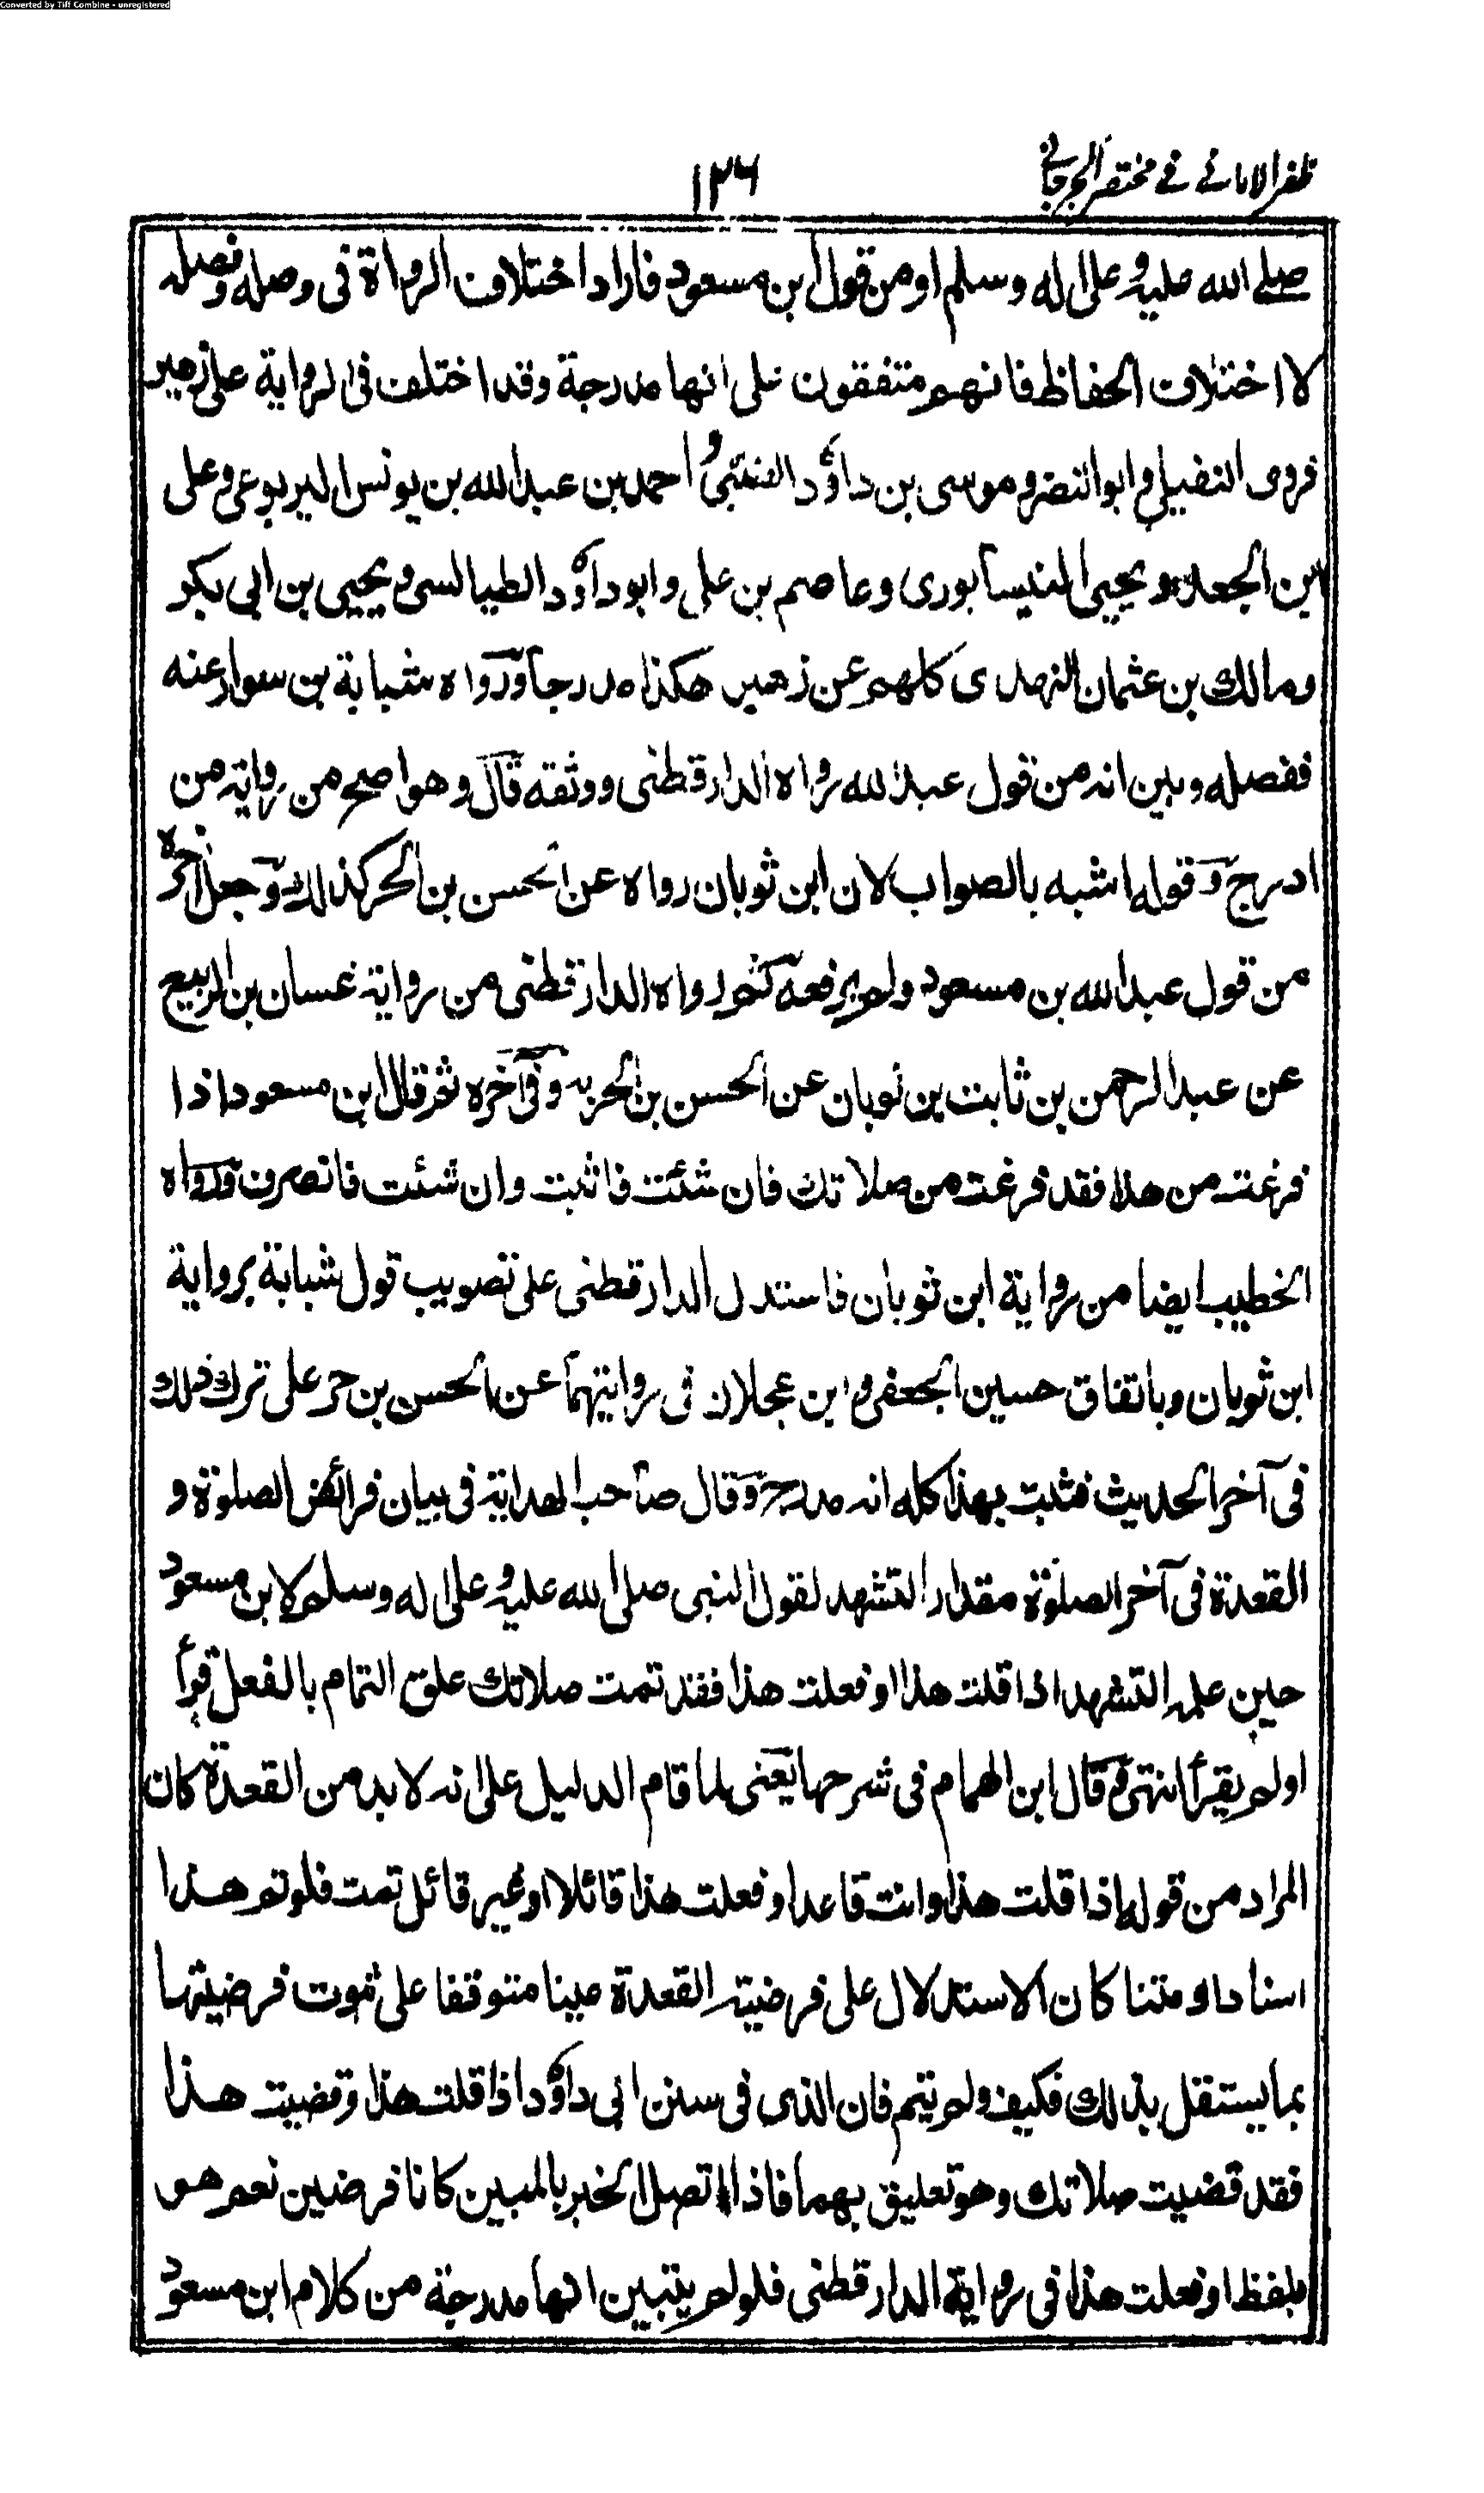 Converted by Tiff Combine - unregistered
ظفر الامانی فی مختصر الجرجانی
١٣٦
صلی الله علیه وعلی اله وسلم او من قول ابن مسعود فاراد اختلاف الرواة فی وصله وفصله
لا اختلاف الحفاظ فانهم متفقون علی انها مدرجة وقد اختلف فی الروایة علی زهیر
فروی النفیلی وابو النضر وموسی بن داؤد الضبی واحمد بن عبد الله بن یونس الیربوعی وعلی
ابن الجعد ویحیی النیسابوری وعاصم بن علی وابو داؤد الطیالسی ویحیی بن ابی بکر
ومالك بن عثمان النهدی کلهم عن زهیر هکذا مدرجا ورواه شبابة بن سوار عنه
ففصله وبین انه من قول عبد الله رواه الدارقطنی ووثقه قال وهو اصح من روایة من
ادرج وقوله اشبه بالصواب لان ابن ثوبان رواه عن الحسن بن الحر کذلك وجعل آخره
من قول عبد الله بن مسعود ولم یرفعه ثم رواه الدارقطنی من روایة غسان بن الربیع
عن عبد الرحمن بن ثابت بن ثوبان عن الحسن بن الحر به وفی آخره ثم قال ابن مسعود اذا
فرغت من هذا فقد فرغت من صلاتك فان شئت فاثبت وان شئت فانصرف ورواه
الخطیب ایضا من روایة ابن ثوبان فاستدل الدارقطنی علی تصویب قول شبابة بروایة
ابن ثوبان وباتفاق حسین الجعفی وابن عجلان فی روایتهما عن الحسن بن حر علی ترك ذلك
فی آخر الحدیث فثبت بهذا کله انه مدرج وقال صاحب الهدایة فی بیان فرائض الصلوة و
القعدة فی آخر الصلوة مقدار التشهد لقول النبی صلی الله علیه وعلی اله وسلم لابن مسعود
حین علمه التشهد اذا قلت هذا او فعلت هذا فقد تمت صلاتك علق التمام بالفعل قرأ
او لم یقرأ انتهی وقال ابن الهمام فی شرحها یعنی لما قام الدلیل علی انه لا بد من القعدة کان
المراد من قوله اذا قلت هذا وانت قاعد او فعلت هذا قائلا او غیر قائل تمت فلو تم هذا
اسنادا ومتنا کان الاستدلال علی فرضیة القعدة مبینا متوقفا علی ثبوت فرضیتها
بما یستقل بذلك فکیف ولم یتم فان الذی فی سنن ابی داؤد اذا قلت هذا وقضیت هذا
فقد قضیت صلاتك وهو تعلیق بهما فاذا اتصل الخبر بالمبین کانا فرضین نعم هو
بلفظ او فعلت هذا فی روایة الدارقطنی فلو لم یتبین انها مدرجة من کلام ابن مسعود